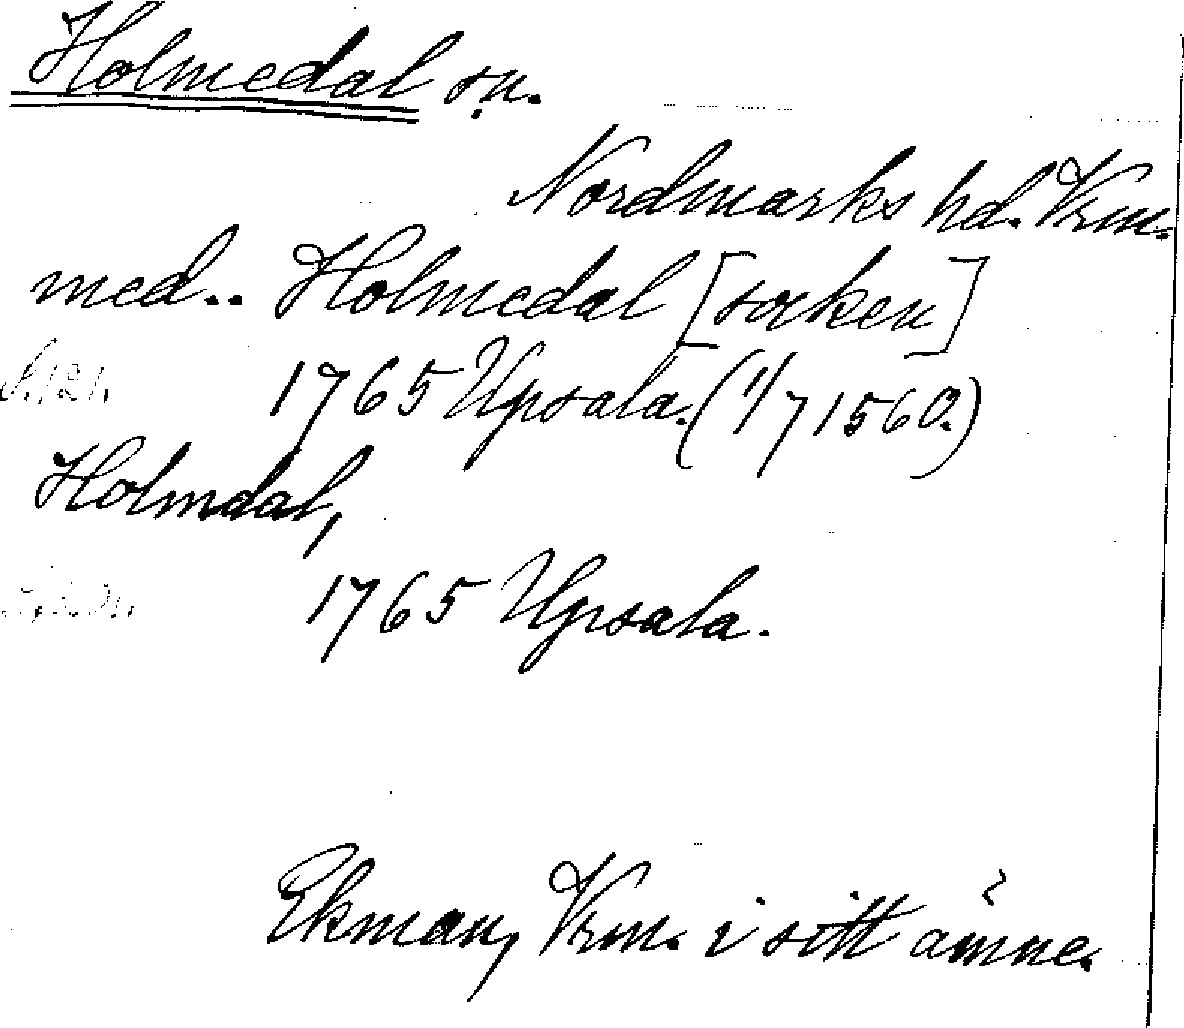 Holmedal sn.
Nordmarks hd. Vrm.
med.. Holmedal [socken]
S. 121. 1765 Upsala. (1/7 1560.)
Holmdal,
1765 Upsala.
Ekman, Vrm. i sitt ämne.